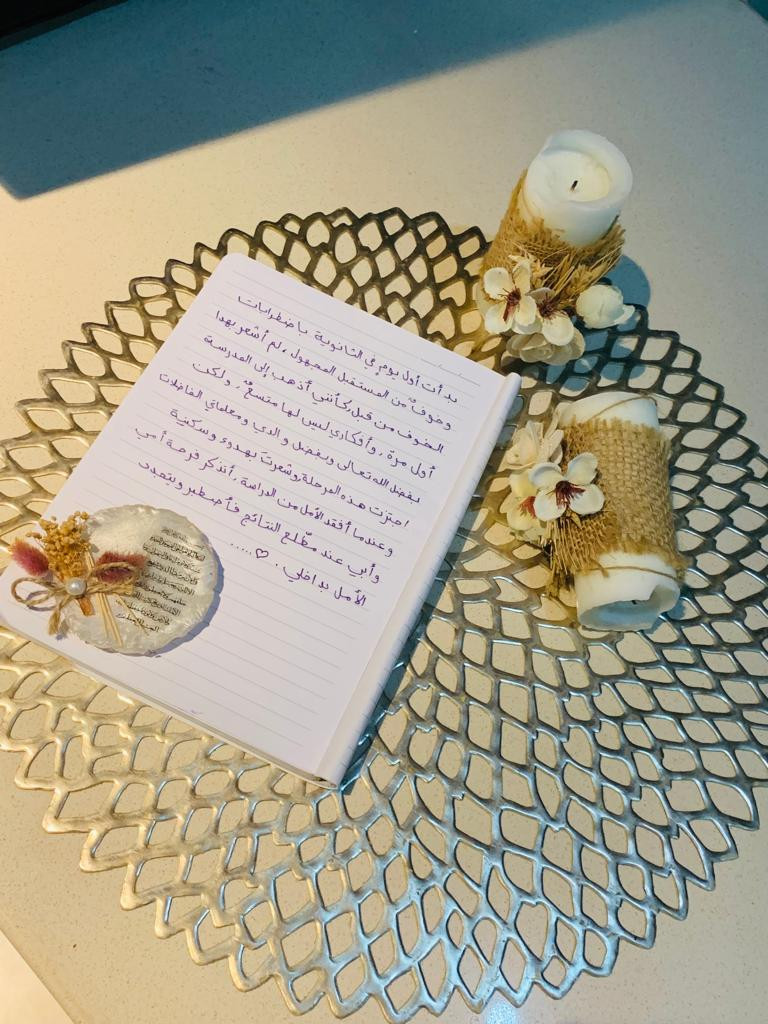 بدأت أول يوم في الثانوية باضطرابات
وخوفٌ من المستقبل المجهول، لم أشعر بهذا
الخوف من قبل، كأنني أذهب إلى المدرسة
أول مرة، وأفكاري ليس لها متسعٌ، ولكن
بفضل الله تعالى وبفضل والدي ومعلماتي الفاضلات
اجتزت هذه المرحلة وشعرت بهدوء وسكنية
وعندما أفقد الأمل من الدراسة، أتذكر فرحة أمي
وأبي عند مطّلع النتائج فأصطبر ويتجدد
الأمل بداخلي. ♡.....